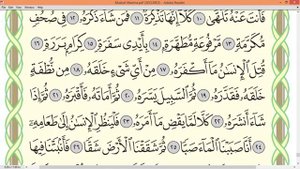 Mushaf Madina.pdf (SECURED) - Adobe Reader
فَأَنتَ عَنْهُ تَلَهَّىٰ ١٠ كَلَّآ إِنَّهَا تَذْكِرَةٌ ١١ فَمَن شَآءَ ذَكَرَهُۥ ١٢ فِى صُحُفٍ
مُّكَرَّمَةٍ ١٣ مَّرْفُوعَةٍ مُّطَهَّرَةٍۭ ١٤ بِأَيْدِى سَفَرَةٍ ١٥ كِرَامٍۭ بَرَرَةٍ ١٦
قُتِلَ ٱلْإِنسَٰنُ مَآ أَكْفَرَهُۥ ١٧ مِنْ أَىِّ شَىْءٍ خَلَقَهُۥ ١٨ مِن نُّطْفَةٍ
خَلَقَهُۥ فَقَدَّرَهُۥ ١٩ ثُمَّ ٱلسَّبِيلَ يَسَّرَهُۥ ٢٠ ثُمَّ أَمَاتَهُۥ فَأَقْبَرَهُۥ ٢١ ثُمَّ إِذَا
شَآءَ أَنشَرَهُۥ ٢٢ كَلَّا لَمَّا يَقْضِ مَآ أَمَرَهُۥ ٢٣ فَلْيَنظُرِ ٱلْإِنسَٰنُ إِلَىٰ طَعَامِهِۦٓ
٢٤ أَنَّا صَبَبْنَا ٱلْمَآءَ صَبًّا ٢٥ ثُمَّ شَقَقْنَا ٱلْأَرْضَ شَقًّا ٢٦ فَأَنۢبَتْنَا فِيهَا